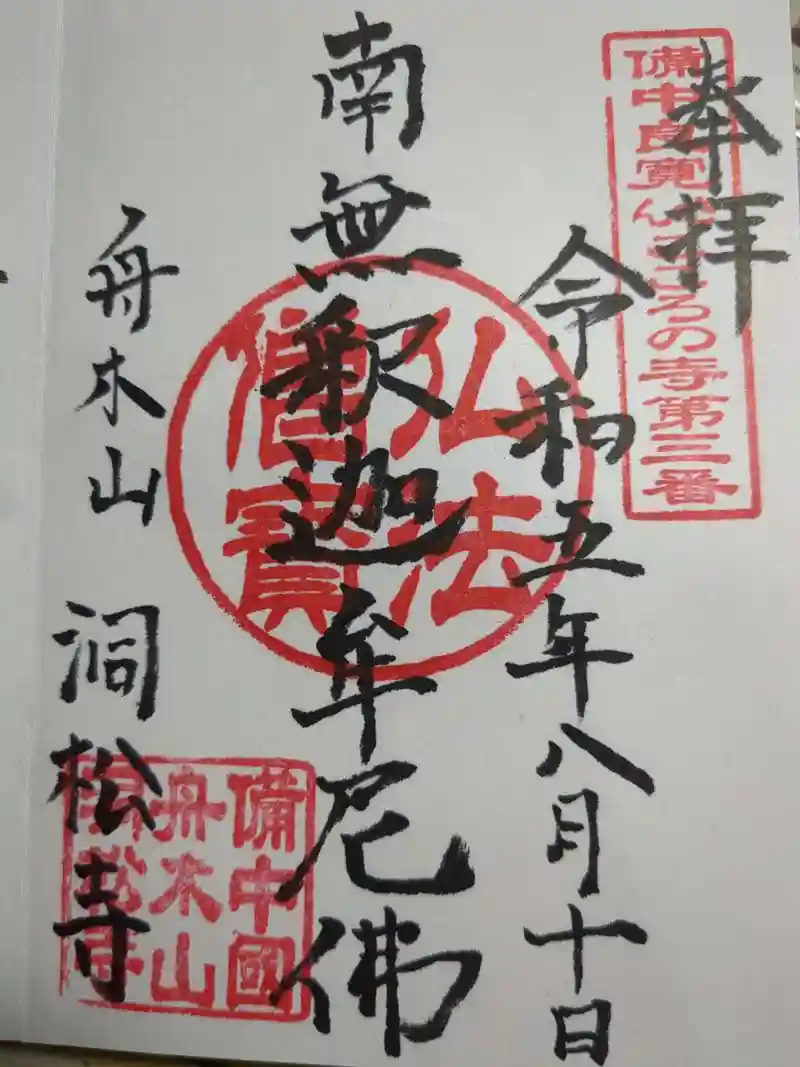 奉拝
備中良寛こころの寺第三番
令和五年八月十日
南無釈迦牟尼佛
弘法
僧寳
舟木山 洞松寺
備中國
舟木山
洞松寺